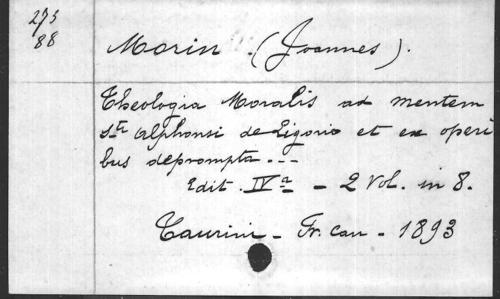 275
88
Morin. (Joannes).
Theologia Moralis ad mentem
sti Alphonsi de Ligorio et ex operi
bus deprompta...
Edit. IVa - 2 Vol. in 8.
Taurini - Fr. Can - 1893